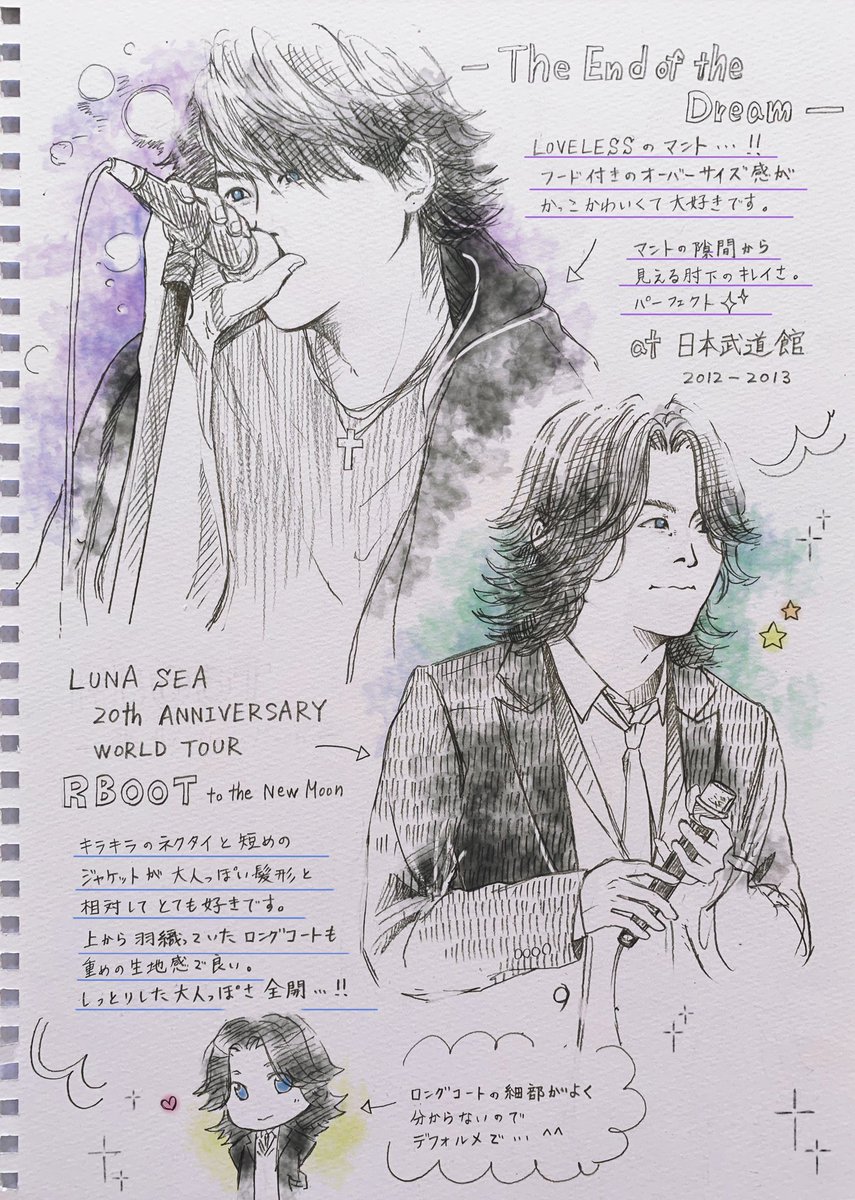 — The End of the
Dream —
LOVELESSのマント…!!
フード付きのオーバーサイズ感が
かっこかわいくて大好きです。
マントの隙間から
見える肘下のキレイさ。
パーフェクト
at 日本武道館
2012-2013
LUNA SEA
20th ANNIVERSARY
WORLD TOUR
RBOOT to the New Moon
キラキラのネクタイと短めの
ジャケットが大人っぽい髪形と
相対してとても好きです。
上から羽織っていたロングコートも
重めの生地感で良い。
しっとりした大人っぽさ全開…!!
ロングコートの細部がよく
分からないので
デフォルメで… ^^